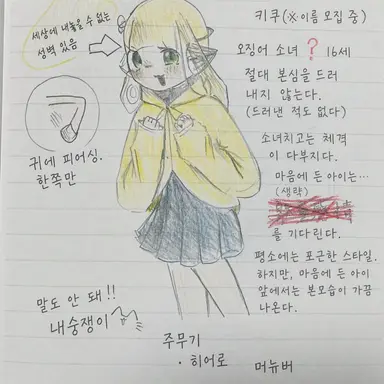 세상에 내놓을 수 없는
성벽 있음
키쿠(※이름 모집 중)
오징어 소녀❓ 16세
절대 본심을 드러
내지 않는다.
(드러낸 적도 없다)
소녀치고는 체격
이 다부지다.
마음에 든 아이는…
(생략)
를 기다린다.
평소에는 포근한 스타일.
하지만, 마음에 든 아이
앞에서는 본모습이 가끔
나온다.
귀에 피어싱.
한쪽만
말도 안 돼!!
내숭쟁이
주무기
·히어로 머뉴버